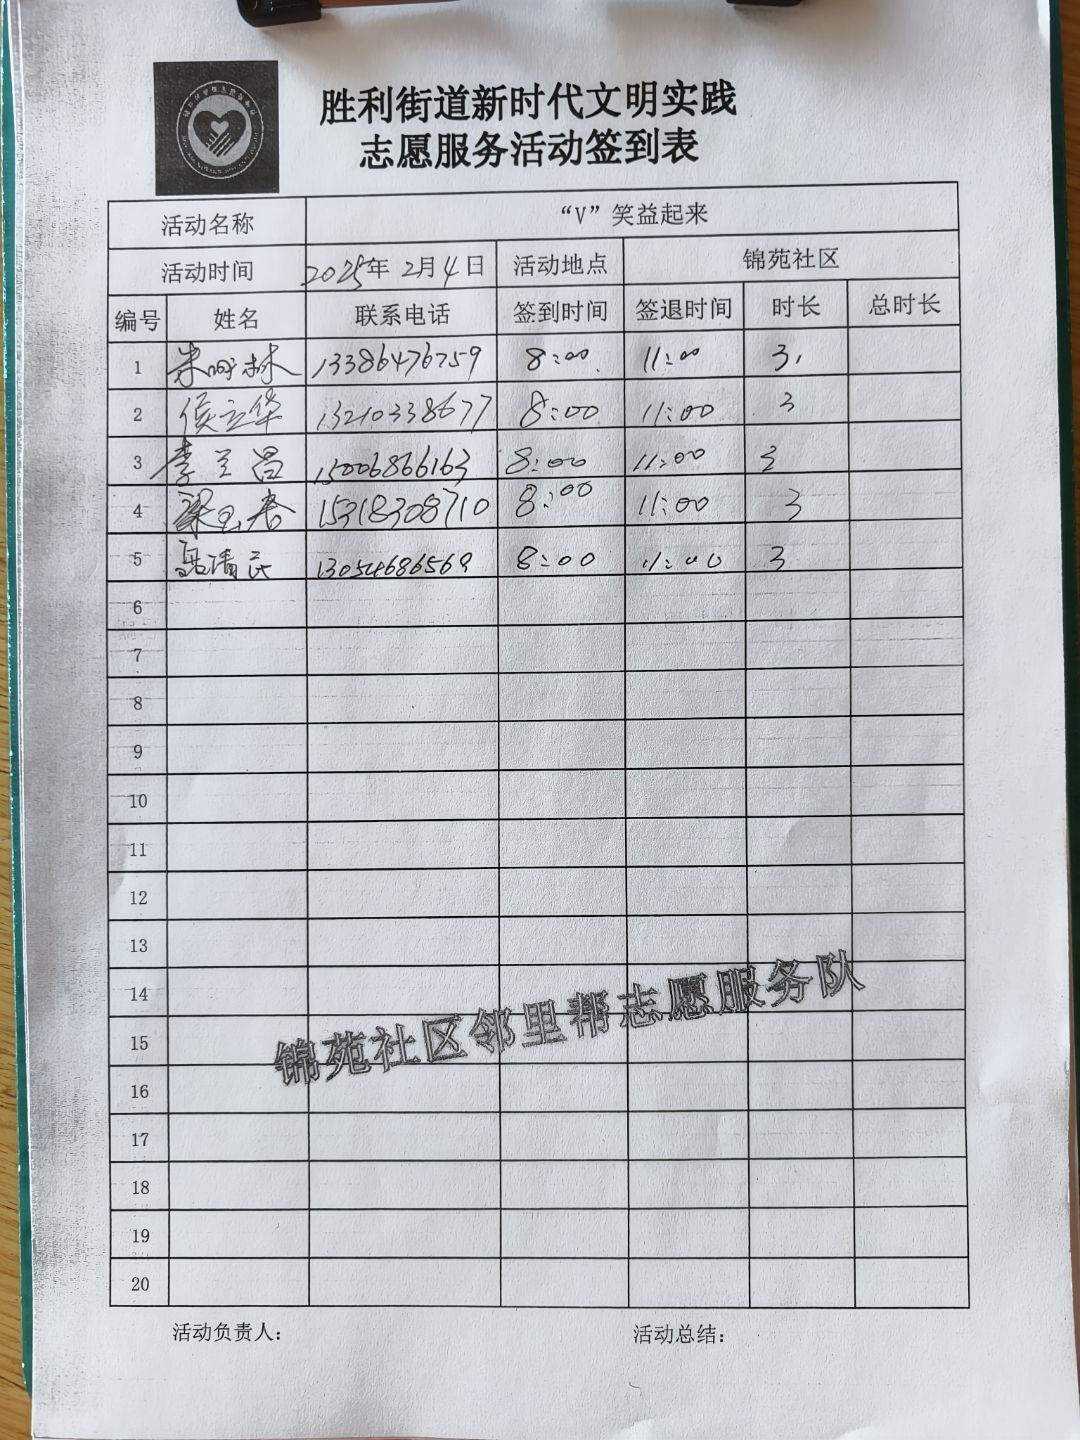 胜利街道新时代文明实践
志愿服务活动签到表
活动名称 “V”笑益起来
活动时间 2025年 2月4日 活动地点 锦苑社区
编号 姓名 联系电话 签到时间 签退时间 时长 总时长
1 林 13386476759 8:00 11:00 3
2 侯立华 13210338677 8:00 11:00 3
3 李兰昌 15006866163 8:00 11:00 3
4 梁玉春 15318308710 8:00 11:00 3
5 清民 13054686569 8:00 11:00 3
6
7
8
9
10
11
12
13
14
15
16
17
18
19
20
锦苑社区邻里帮志愿服务队
活动负责人: 活动总结: